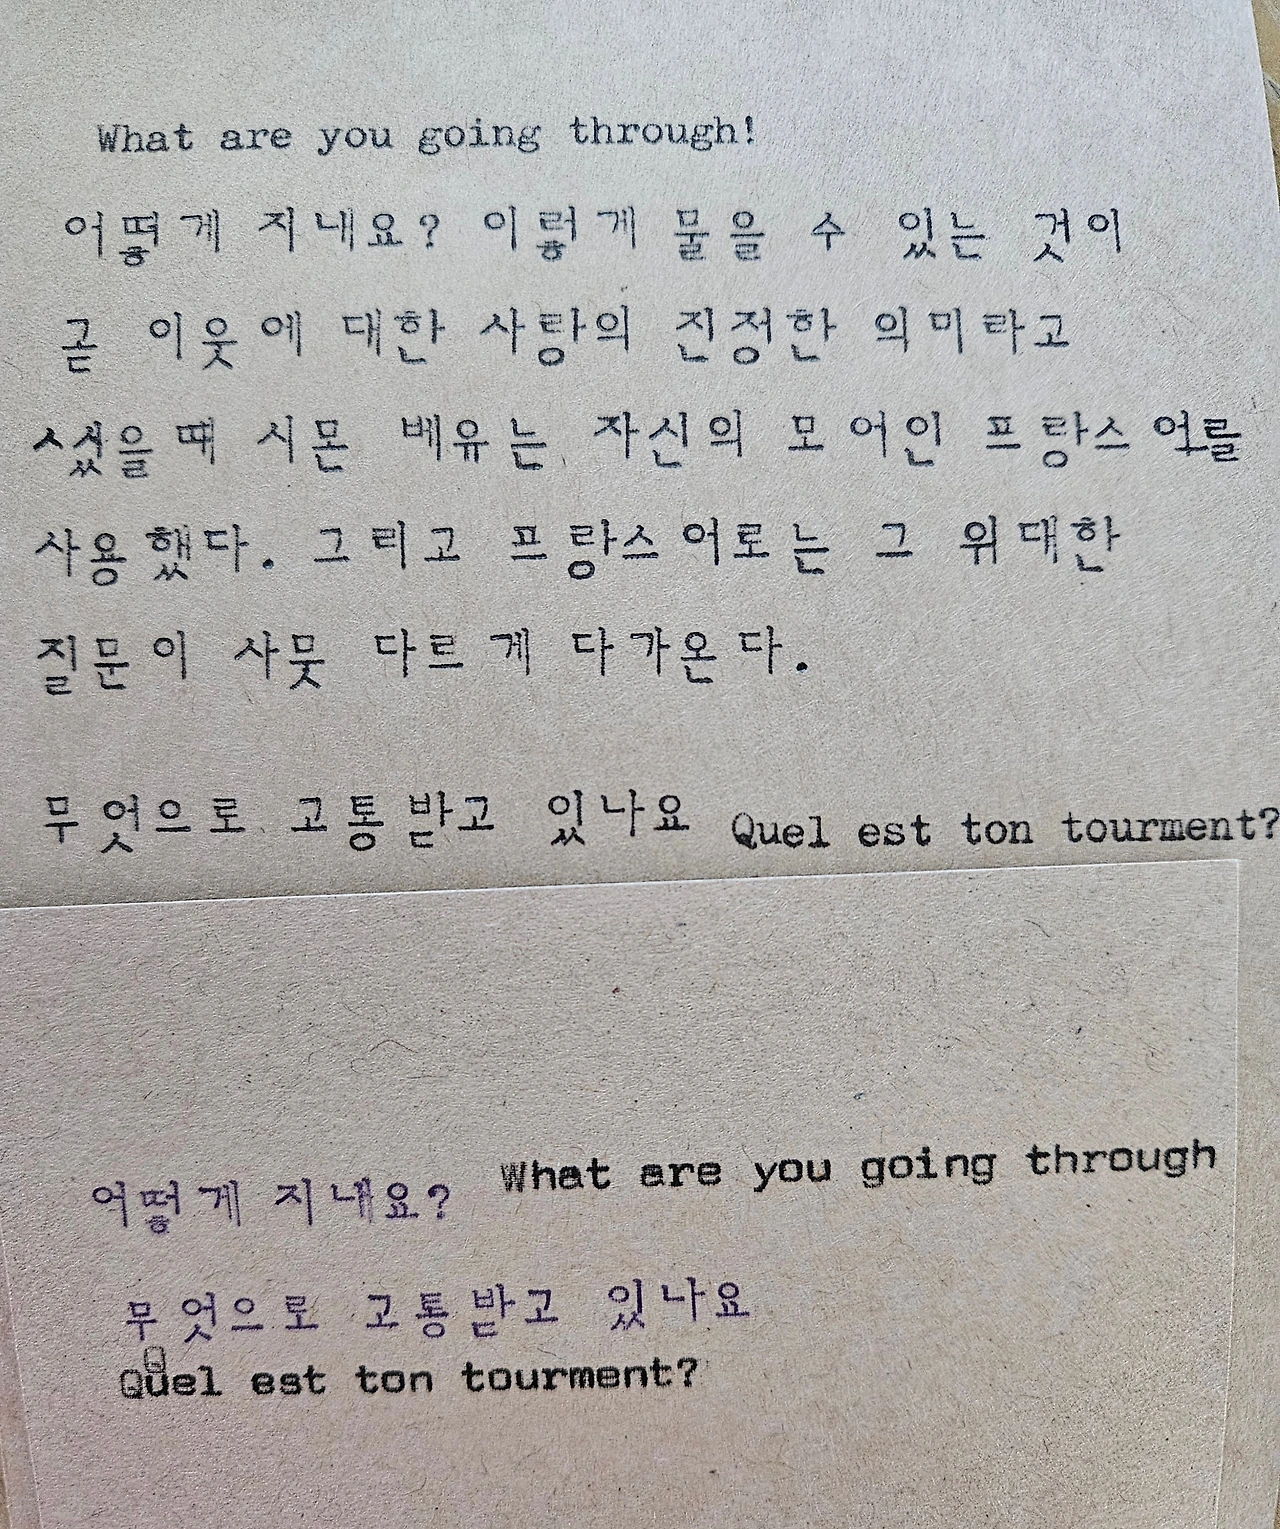 What are you going through!
어떻게 지내요? 이렇게 물을 수 있는 것이
곧 이웃에 대한 사랑의 진정한 의미라고
ㅅ썼을때 시몬 베유는 자신의 모어인 프랑스어를
사용했다. 그리고 프랑스어로는 그 위대한
질문이 사뭇 다르게 다가온다.
무엇으로 고통받고 있나요 Quel est ton tourment?
어떻게 지내요? What are you going through
무엇으로 고통받고 있나요
Quel est ton tourment?